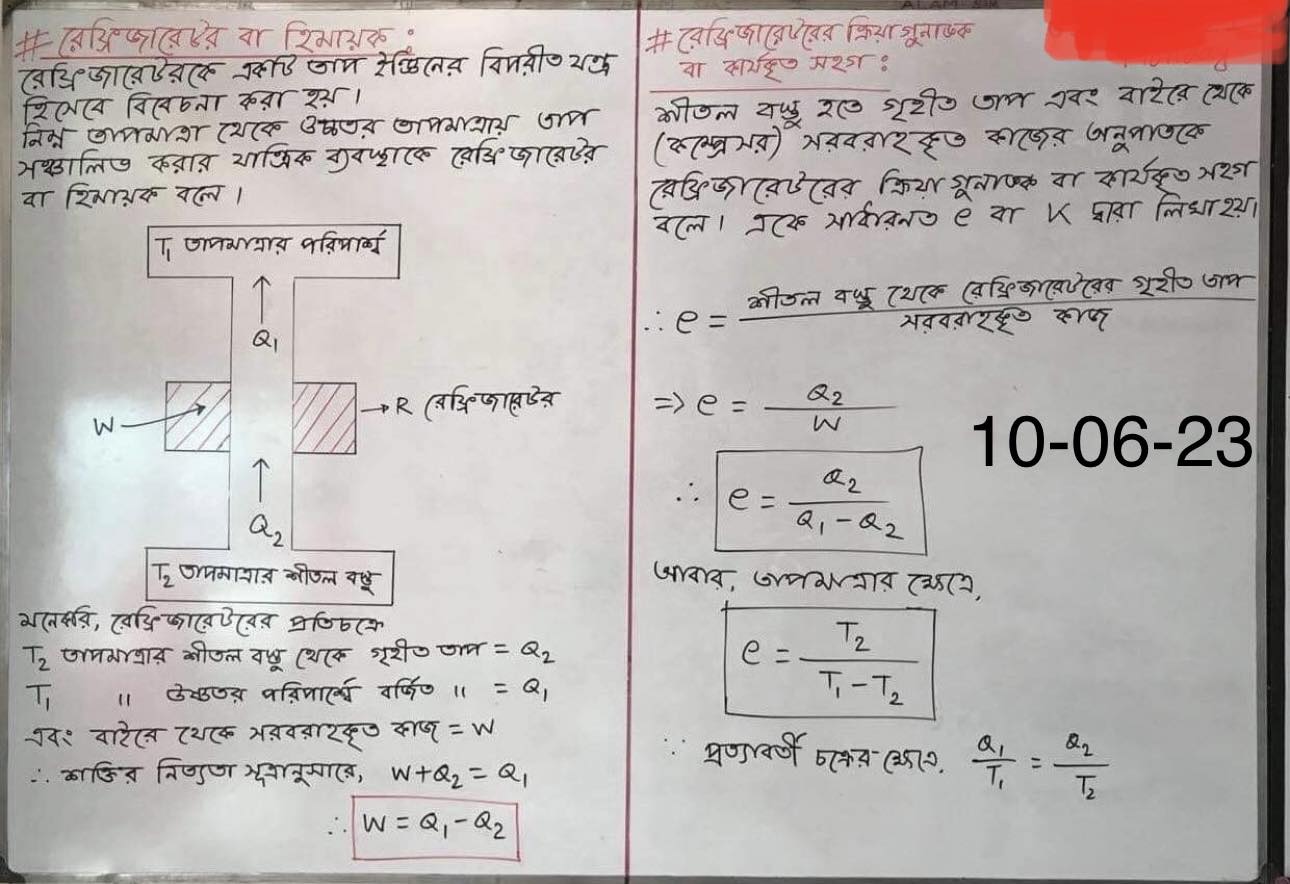 # রেফ্রিজারেটর বা হিমায়ক :
রেফ্রিজারেটরকে একটি তাপ ইঞ্জিনের বিপরীত যন্ত্র
হিসেবে বিবেচনা করা হয়।
নিম্ন তাপমাত্রা থেকে উচ্চতর তাপমাত্রায় তাপ
সঞ্চালিত করার যান্ত্রিক ব্যবস্থাকে রেফ্রিজারেটর
বা হিমায়ক বলে।
T₁ তাপমাত্রার পরিপার্শ্ব
Q₁
W
R রেফ্রিজারেটর
Q₂
T₂ তাপমাত্রার শীতল বস্তু
মনেকরি, রেফ্রিজারেটরের প্রতিচক্রে
T₂ তাপমাত্রার শীতল বস্তু থেকে গৃহীত তাপ = Q₂
T₁ " উষ্ণতর পরিপার্শ্বে বর্জিত " = Q₁
এবং বাইরে থেকে সরবরাহকৃত কাজ = W
∴ শক্তির নিত্যতা সূত্রানুসারে, W+Q₂ = Q₁
∴ W = Q₁ - Q₂
# রেফ্রিজারেটরের ক্রিয়া গুনাঙ্ক
বা কার্যকৃত সহগ :
শীতল বস্তু হতে গৃহীত তাপ এবং বাইরে থেকে
(কম্প্রেসর) সরবরাহকৃত কাজের অনুপাতকে
রেফ্রিজারেটরের ক্রিয়া গুনাঙ্ক বা কার্যকৃত সহগ
বলে। একে সার্ধারনত e বা K দ্বারা লিখা হয়।
∴ e = শীতল বস্তু থেকে রেফ্রিজারেটরের গৃহীত তাপ / সরবরাহকৃত কাজ
=> e = Q₂ / W
10-06-23
∴ e = Q₂ / Q₁ - Q₂
আবার, তাপমাত্রার ক্ষেত্রে,
e = T₂ / T₁ - T₂
∵ প্রত্যাবর্তী চক্রের ক্ষেত্রে, Q₁ / T₁ = Q₂ / T₂